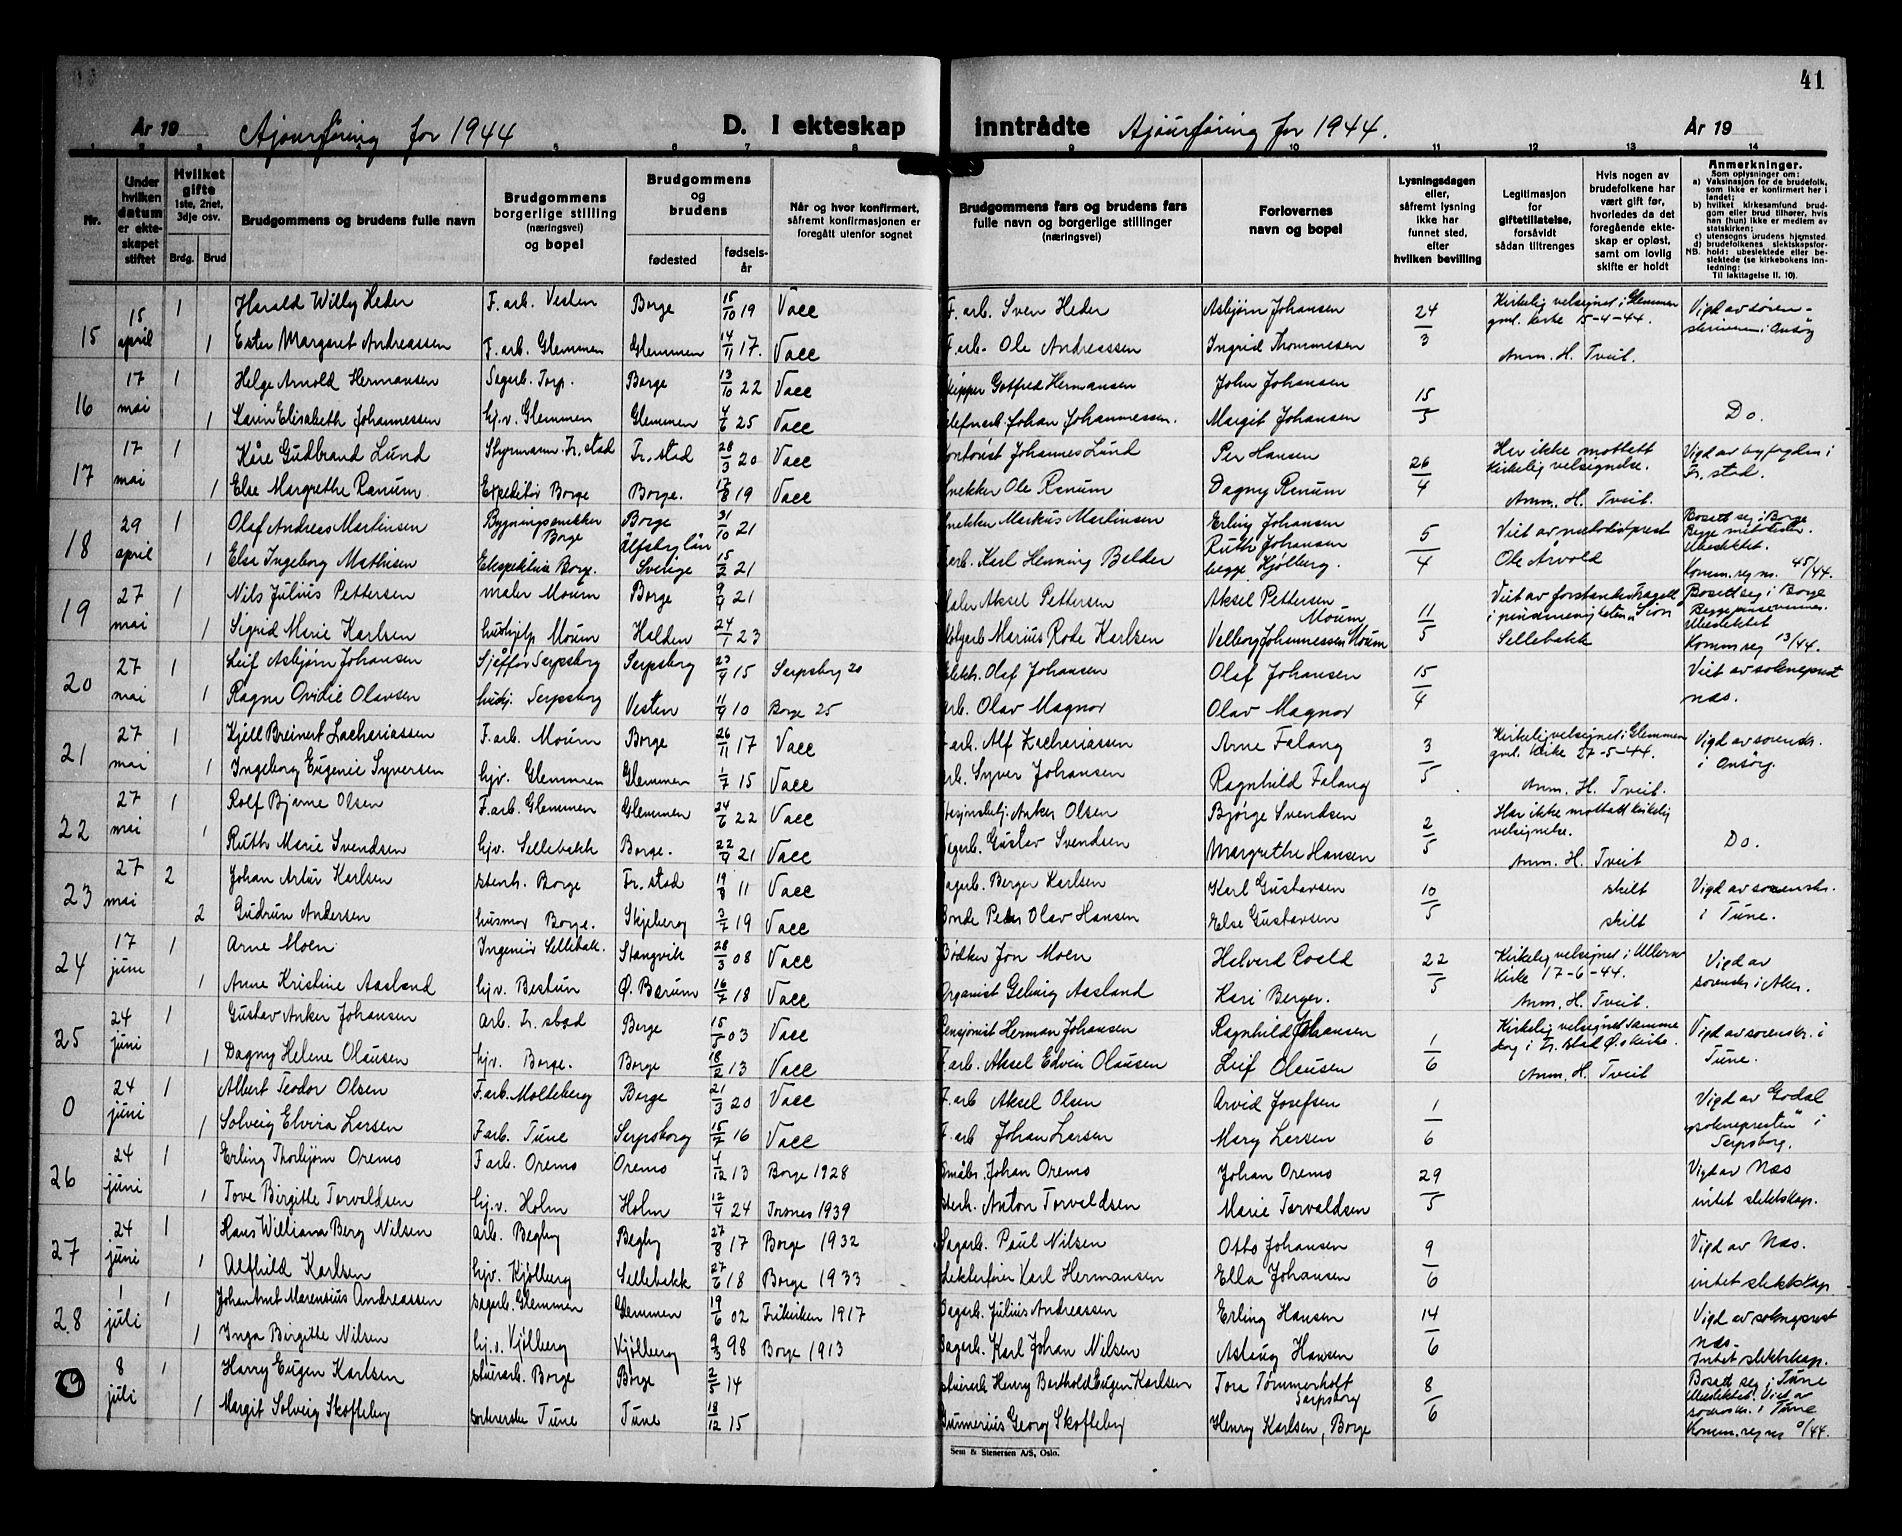 41
År 19 Ajourføring for 1944 D. I ekteskap inntrådte Ajourføring for 1944. År 19
1 2 3 4 5 6 7 8 9 10 11 12 13 14
Nr.
Under hvilken datum er ekteskapet stiftet
Hvilket gifte 1ste, 2net, 3dje osv.
Brdg. Brud
Brudgommens og brudens fulle navn
Brudgommens borgerlige stilling (næringsvei) og bopel
Brudgommens og brudens
fødested
fødselsår
Når og hvor konfirmert, såfremt konfirmasjonen er foregått utenfor sognet
Brudgommens fars og brudens fars fulle navn og borgerlige stillinger (næringsvei)
Forlovernes navn og bopel
Lysningsdagen eller, såfremt lysning ikke har funnet sted, efter hvilken bevilling
Legitimasjon for giftetillatelse, forsåvidt sådan tiltrenges
Hvis nogen av brudefolkene har vært gift før, hvorledes da det foregående ekteskap er opløst, samt om lovlig skifte er holdt
Anmerkninger.
Som oplysninger om:
a) Vaksinasjon for de brudefolk, som ikke er konfirmert her i landet;
b) hvilket kirkesamfund brudgom eller brud tilhører, hvis han (hun) ikke er medlem av statskirken;
c) utensogns brudens hjemsted.
d) brudefolkenes slektskapsforhold: ubeslektede eller beslektede (se kirkebokens innledning:
NB.
Til iakttagelse II. 10).
15 15 april 1 Harald Willy Heder F. arb. Vesten Borge 15/10 19 Vacc F. arb. Sven Heder Asbjørn Johansen 24/3 Kirkelig velsignet i Glemmen gml. kirke 15-4-44. Vigd av sorenskriveren i Onsøy
1 Ester Margaret Andreassen F. arb. Glemmen Glemmen 14/11 17. Vacc F. arb. Ole Andreassen Ingrid Thommesen Anm. H. Tveit.
16 17 mai 1 Helge Arnold Hermansen Sagarb. Torp. Borge 13/10 22 Vacc Skipper Gotfred Hermansen John Johansen 15/5
1 Karin Elisabeth Johannessen hj.v. Glemmen Glemmen 4/6 25 Vacc Telefonarb. Johan Johannessen. Margit Johansen Do.
17 17 mai 1 Kåre Gudbrand Lund Styrmann Fr.stad Fr.stad 28/3 20 Vacc Kontorist Johannes Lund Per Hansen 26/4 Har ikke mottatt kirkelig velsignelse. Vigd av byfogden i Fr.stad.
1 Else Margrethe Ranum Ekspeditør Borge Borge. 17/8 19 Vacc Snekker Ole Ranum Dagny Ranum Anm. H. Tveit.
18 29 april 1 Olaf Andreas Martinsen Bygningssnekker Borge Borge 31/10 21 Snekker Markus Martinsen Erling Johansen 5/4 Viet av metodistprest Ole Arvold Bosatt seg i Borge Begge metodister. Ubeslektet.
1 Else Ingeborg Mathisen Ekspeditrise Borge. Älfsborg län Sverige 15/2 21 F.arb. Karl Henning Belder Ruth Johansen begge Kjølberg. Komm.reg no. 45/44.
19 27 mai 1 Nils Julius Pettersen maler Moum Borge 9/9 21 Maler Aksel Pettersen Aksel Pettersen Moum 11/5 Viet av forstander i pinsemenigheten "Sion" Sellebakk Bosatt seg i Borge Begge pinsevenner. Ubeslektet
1 Sigrid Marie Karlsen hushjelp Moum Halden 24/1 23 Marius Rode Karlsen Johannessen Moum Komm.reg 13/44.
20 27 mai 1 Leif Asbjørn Johansen Sjåfør Sarpsborg Sarpsborg 23/9 15 Sarpsborg 20 Elektr. Olaf Johansen Olaf Johansen 15/4 Viet av sokneprest Næs.
1 Ragna Ovidie Olavsen hushj. Sarpsborg Vesten 11/9 10 Borge 25 arb. Olav Magnor Olav Magnor
21 27 mai 1 Kjell Breinert Zachariassen F.arb. Moum Borge 26/11 17 Vacc F.arb. Alf Zachariassen Arne Falang 3/5 Kirkelig velsignet i Glemmen gml. kirke 27-5-44. Vigd av sorenskr. i Onsøy.
1 Ingeborg Eugenie Syversen hjv. Glemmen Glemmen 1/7 15 Vacc arb. Syver Johansen Ragnhild Falang Anm. H. Tveit.
22 27 mai 1 Rolf Bjarne Olsen F.arb. Glemmen Glemmen 24/6 22 Vacc Anker Olsen Bjørge Svendsen 2/5 Har ikke mottatt kirkelig velsignelse.
1 Ruth Marie Svendsen hjv. Sellebakk Borge. 22/9 21 Vacc Sagarb. Gustav Svendsen Margrethe Hansen Anm. H. Tveit Do.
23 27 mai 2 Johan Artur Karlsen stenh. Borge Fr.stad 19/8 11 Vacc Sagarb. Berger Karlsen Karl Gustavsen 10/5 skilt Vigd av sorenskr. i Tune.
2 Gudrun Andersen husmor Borge. Skjeberg 3/7 19 Vacc Bonde Peder Olav Hansen Else Gustavsen skilt
24 17 june 1 Arne Moen Ingeniør Sellebakk. Stangvik 28/3 08 Vacc Bødker Jon Moen Halvard Roald 22/5 Kirkelig velsignet i Ullern kirke 17-6-44. Vigd av sorenskr i Aker.
1 Anne Kristine Aasland hjv. Bestun Ø. Bærum 16/7 18 Vacc Organist Gelmig Aasland Kari Berger. Anm. H. Tveit.
25 24 juni 1 Gustav Anker Johansen Arb. Fr. stad Borge 15/5 03 Vacc Pensjonist Herman Johansen Ragnhild Johansen 1/6 Kirkelig velsignet samme dag i Fr.stad Ø. kirke. Vigd av sorenskr. i Tune.
1 Dagny Helene Olausen hjv. Borge. Borge 18/2 13 Vacc F.arb. Aksel Edvin Olausen Leif Olausen Anm. H. Tveit
0 24 juni 1 Albert Teodor Olsen F.arb. Molteberg Borge 21/3 20 Vacc F.arb Aksel Olsen Arvid Josefsen 1/6 Vigd av Godal "sognepresten" i Sarpsborg.
1 Solveig Elvira Larsen F.arb. Tune Sarpsborg 15/7 16 Vacc F.arb Johan Larsen Mary Larsen
26 24 juni 1 Erling Thorbjørn Oremo F.arb. Oremo Oremo 4/12 13 Borge 1928 Småbr. Johan Oremo Johan Oremo 29/5 Vigd av Næs
1 Tove Birgitte Torvaldsen hj.v. Holm Holm 12/9 24 Torsnes 1939 Stenh. Anton Torvaldsen Marie Torvaldsen intet slektskap.
27 24 juni 1 Hans William Berg Nilsen arb. Begby Begby 27/8 17 Borge 1932 Sagarb. Paul Nilsen Otto Johansen 9/6 Vigd av Næs.
1 Alfhild Karlsen hjv. Kjølberg Sellebakk 27/6 18 Borge 1933 Lekterfører Karl Hermansen Ella Johansen intet slektskap
28 1 juli 1 Johan Arnt Marensius Andreassen Sagarb. Glemmen Glemmen 19/6 02 Frikirken 1917 Sagarb. Julius Andreassen Erling Hansen 14/6 Vigd av sokneprest Næs.
1 Inga Birgitte Nilsen hj.v. Kjølberg Kjølberg 9/3 98 Borge 1913 Sagarb. Karl Johan Nilsen Aslaug Hansen Intet slektskap.
29 8 juli 1 Harry Eugen Karlsen stuerarb. Borge Borge 2/5 14 stuerarb Henry Barthold Eugen Karlsen Tore Tømmerholt Sarpsborg 8/6 Bosatt seg i Tune Ubeslektet. Viet av sorenskr. i Tune
1 Margit Solveig Skofteby Tune Tune 18/12 15 Gunnerius Georg Skofteby Henry Karlsen, Borge Komm.reg no 0/44.
Sem & Stenersen A/S, Oslo.